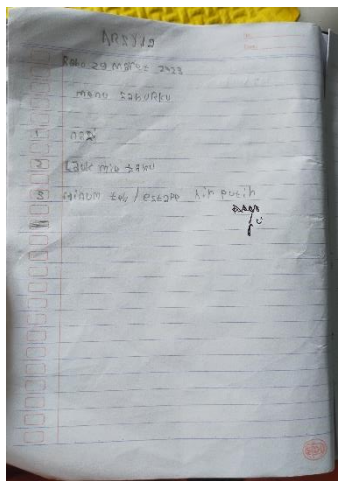 Rabo 29 Maret 2023
menu sahurku
1 nasi
2 Lauk mie tahu
3 minum teh / estape Air putih